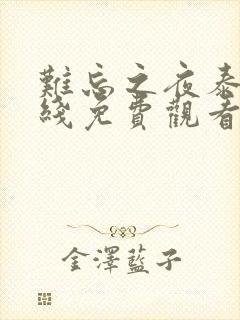 難忘之夜泰
綫免費觀看
金澤藍子